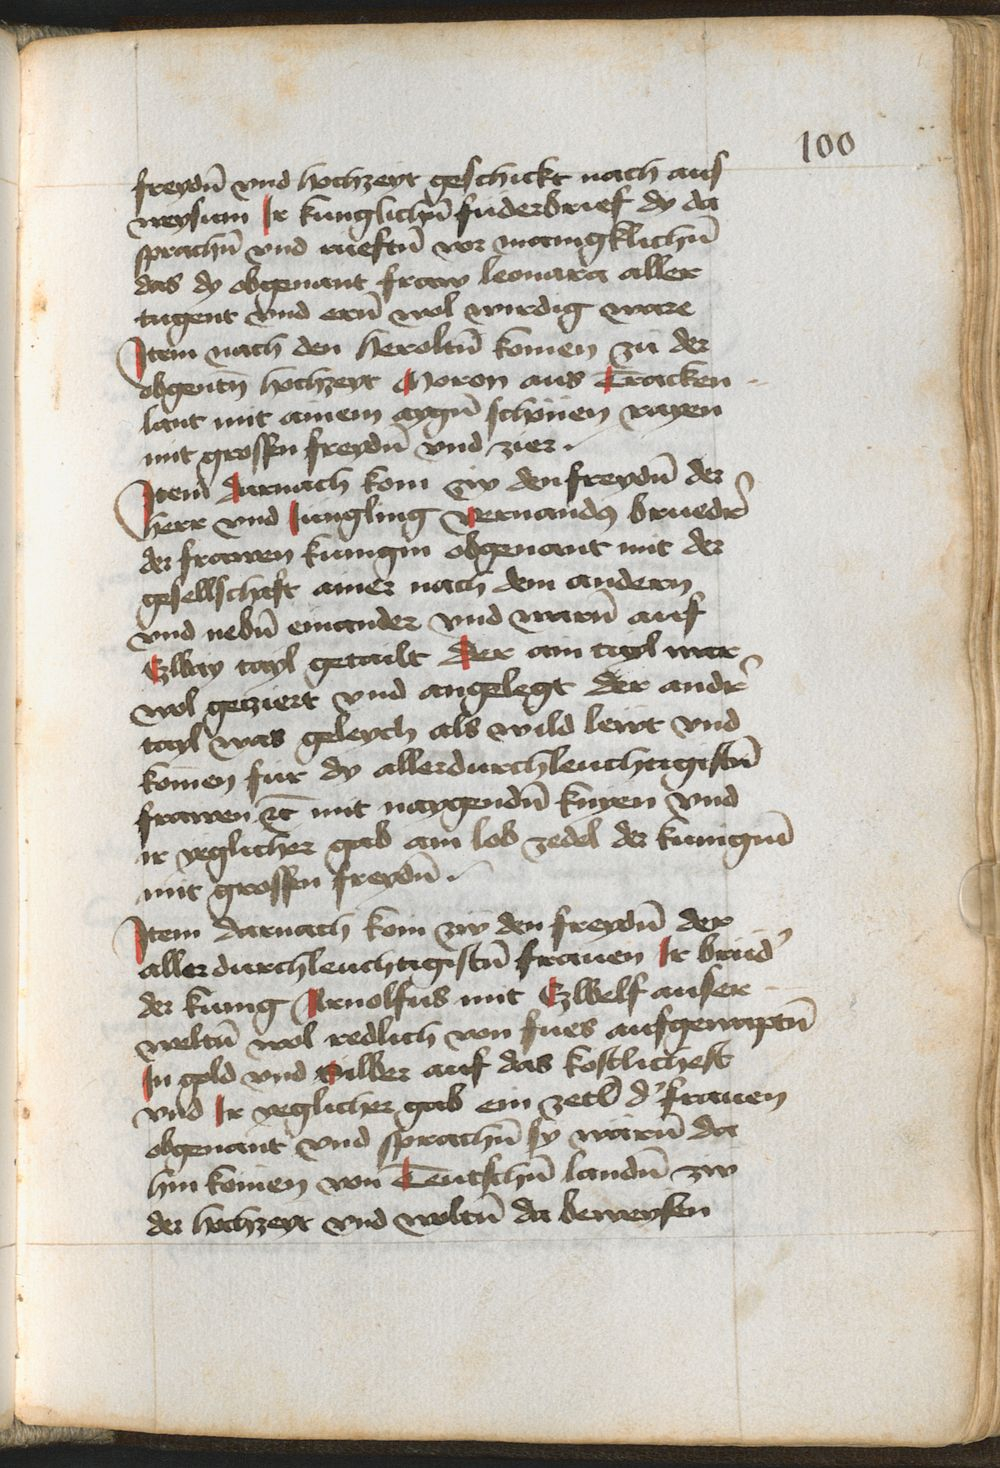 100
freydn̄ vnd hochzeyt geschickt nach aus
weysum Ir kunglichn̄ fuderbrief dy da
sprachn̄ vnd rueftn̄ vor manigklichn̄
das dy obgenant fraw leonara aller
tugent vnd ern̄ wol wirdig ware
Item nach den heroltn̄ komen zu der
obgentn̄ hochzeyt Moron aus Tracken
lant mit ainem aygn̄ schonen rayen
mit grossen freydn̄ vnd zier.
Item Darnach kom zw den freydn̄ der
herr vnd Jungling vernandꝯ bruedr̄
der frawen kunigin obgenant mit der
gesellschaft ainer nach dem andern
vnd nebn̄ einander vnd warn̄ auf
Czway tayl getailt Der ain tayl war
wol geziert vnd angelegt der andr̄
tayl was geleych als wild lewt vnd
komen fur dy allerdurchleuchtigistn̄
frawen ꝛc̄ mit naygendn̄ knyen vnd
ir yeglicher gab ain lob zedel der kunigin̄
mit grossen freydn̄.
Item darnach kom zw den freydn̄ der
allerdurchleuchtigistn̄ frauen Ir brud'
der kunig Arnolfus mit Czwelf auser
weltn̄ wol redlich von fues aufgewaptn̄
In gold vnd Silber auf das kostlichest
vnd Ir yeglicher gab ein zetl d' frauen
obgenant vnd sprachn̄ sy warn̄ da
hin komen von Teutschn̄ landn̄ zw
der hochzeyt vnd woltn̄ da beweysen